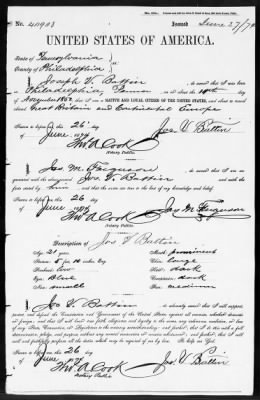 No. 41923 Issued June 27/74
UNITED STATES OF AMERICA.
State of Pennsylvania
County of Philadelphia
I, Joseph V. Battin, do swear that I was born
in Philadelphia, Penna on the
day of
November 1852 that I am a NATIVE AND LOYAL CITIZEN OF THE UNITED STATES, and about to travel
Great Britain and Continental Europe
Sworn to before me, this 26 day
of June 1874
Thos A Cook
Notary Public.
Jos. V. Battin
I, Jas M. Ferguson, do swear that I am
acquainted with the above-named Jos. V. Battin and with the facts
by him and that the same are true to the best of my knowledge and belief.
Sworn to before me, this 26 day
of June 1874
Thos A Cook
Notary Public.
Jas M. Ferguson
Description of Jos V Battin
Age: 21 years Mouth: prominent
Stature: 5 feet 10 inches Eng. Chin: large
Forehead: low Hair: dark
Eyes: Blue Complexion: dark
Nose: small Face: medium
I, Jos V. Battin, do solemnly swear that I will support,
protect, and defend the Constitution and Government of the United States against all enemies, whether domestic or
foreign; and that I will bear true faith, allegiance and loyalty to the same, any ordinance, resolution, or law
of any State, Convention, or Legislature to the contrary notwithstanding; and further, that I do this with a full
determination, pledge, and purpose, without any mental reservation or evasion whatsoever; and further, that I
will well and faithfully perform all the duties which may be required of me by law. So help me God.
Sworn to before me, this 26 day
of June 1874
Thos A Cook
Notary Public
Jos. V. Battin